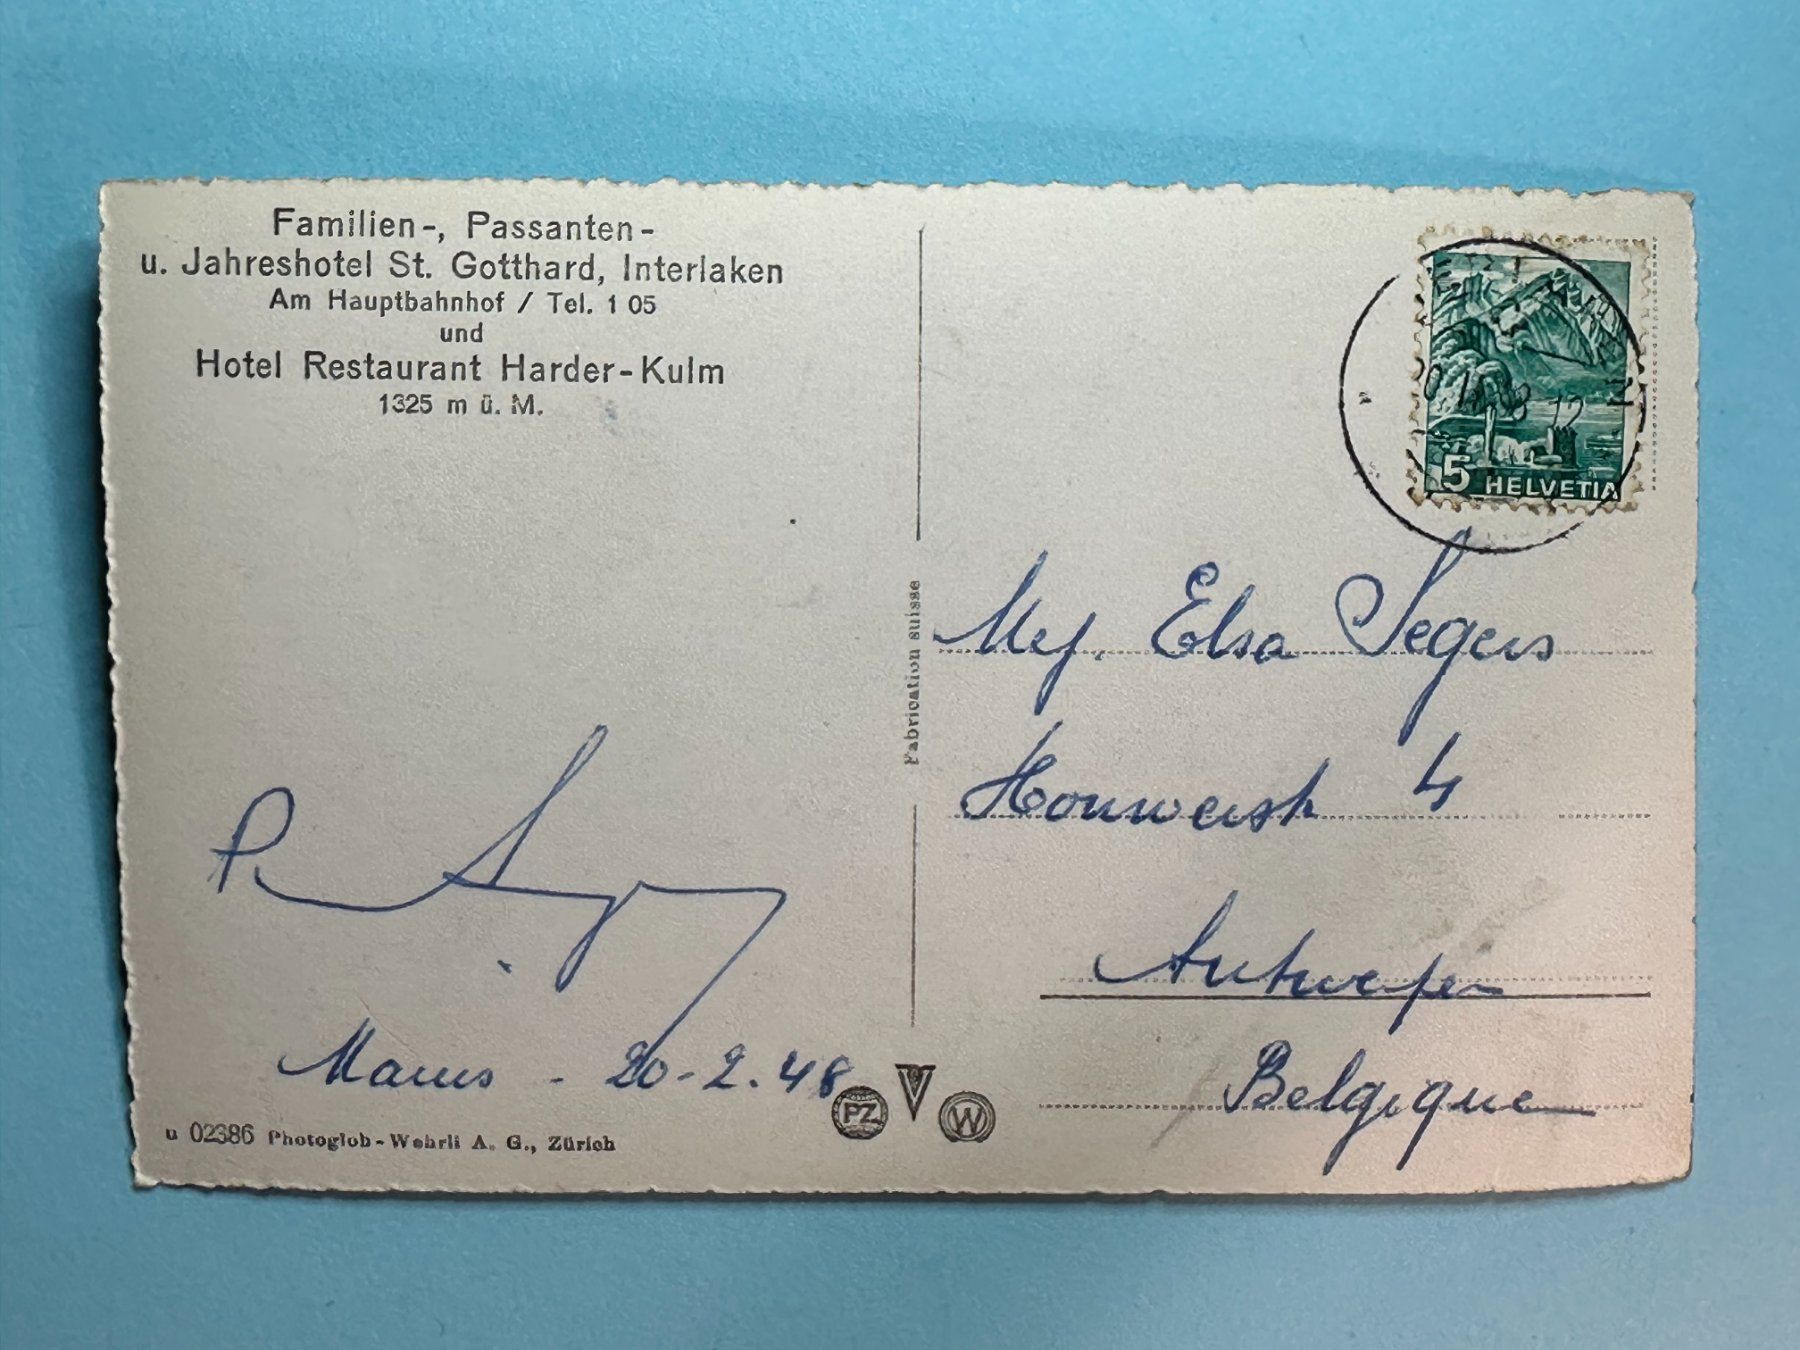 Familien-, Passanten-
u. Jahreshotel St. Gotthard, Interlaken
Am Hauptbahnhof / Tel. 1 05
und
Hotel Restaurant Harder-Kulm
1325 m ü. M.
P.
20-2.48
u 02386 Photoglob-Wehrli A. G., Zürich
Fabrication suisse
PZ
W
5 HELVETIA
12
Mej. Elsa Segers
4
Antwerpen
Belgique